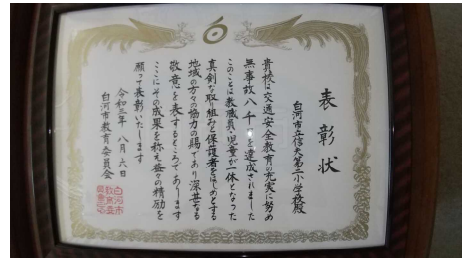 表彰状
白河市立信夫第二小学校殿
貴校は交通安全教育の充実に努め
無事故八千日を達成されました
このことは教職員・児童が一体となった
真剣な取り組みと保護者をはじめとする
地域の方々の協力の賜であり深甚なる
敬意を表するところであります
ここにその成果を称え益々の精励を
願って表彰いたします
令和三年八月六日
白河市教育委員会